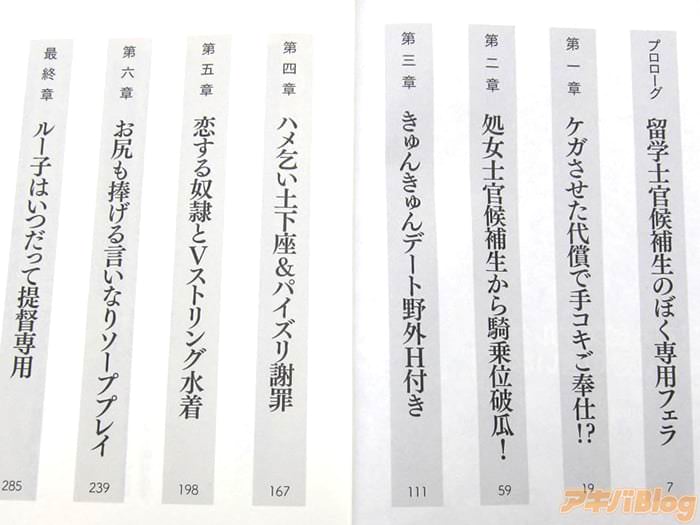 プロローグ
留学士官候補生のぼく専用フェラ
7
第一章
ケガさせた代償で手コキご奉仕!?
19
第二章
処女士官候補生から騎乗位破瓜！
59
第三章
きゅんきゅんデート野外H付き
111
第四章
ハメ乞い土下座&パイズリ謝罪
167
第五章
恋する奴隷とVストリング水着
198
第六章
お尻も捧げる言いなりソーププレイ
239
最終章
ルー子はいつだって提督専用
285
アキバBlog